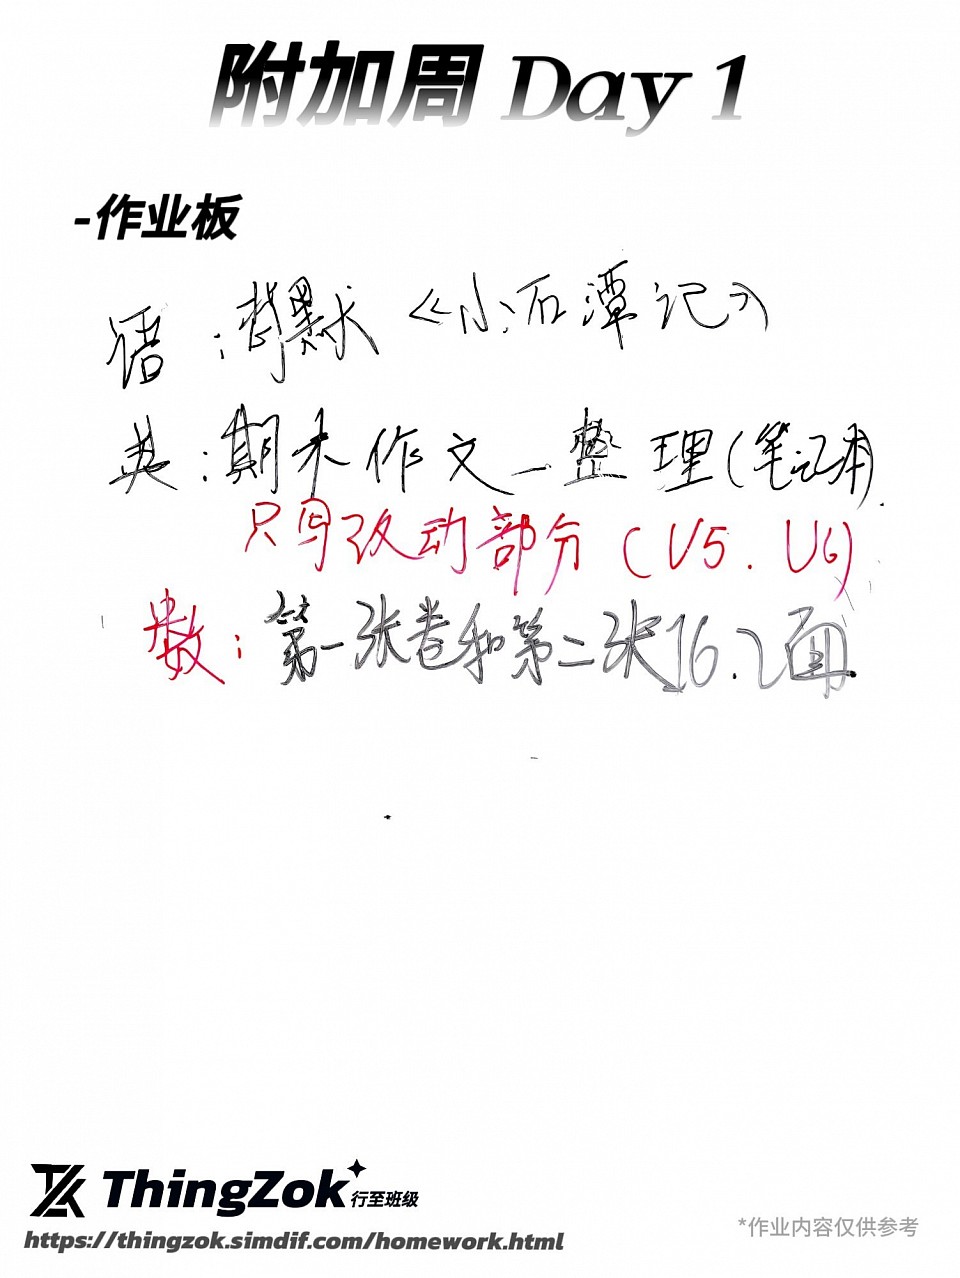 附加周 Day 1
-作业板
语：背默《小石潭记》
英：期末作文_整理（笔记本）
只写改动部分（U5. U6）
数：第一张卷和第二张16.2面
ThingZok 行至班级
https://thingzok.simdif.com/homework.html
*作业内容仅供参考